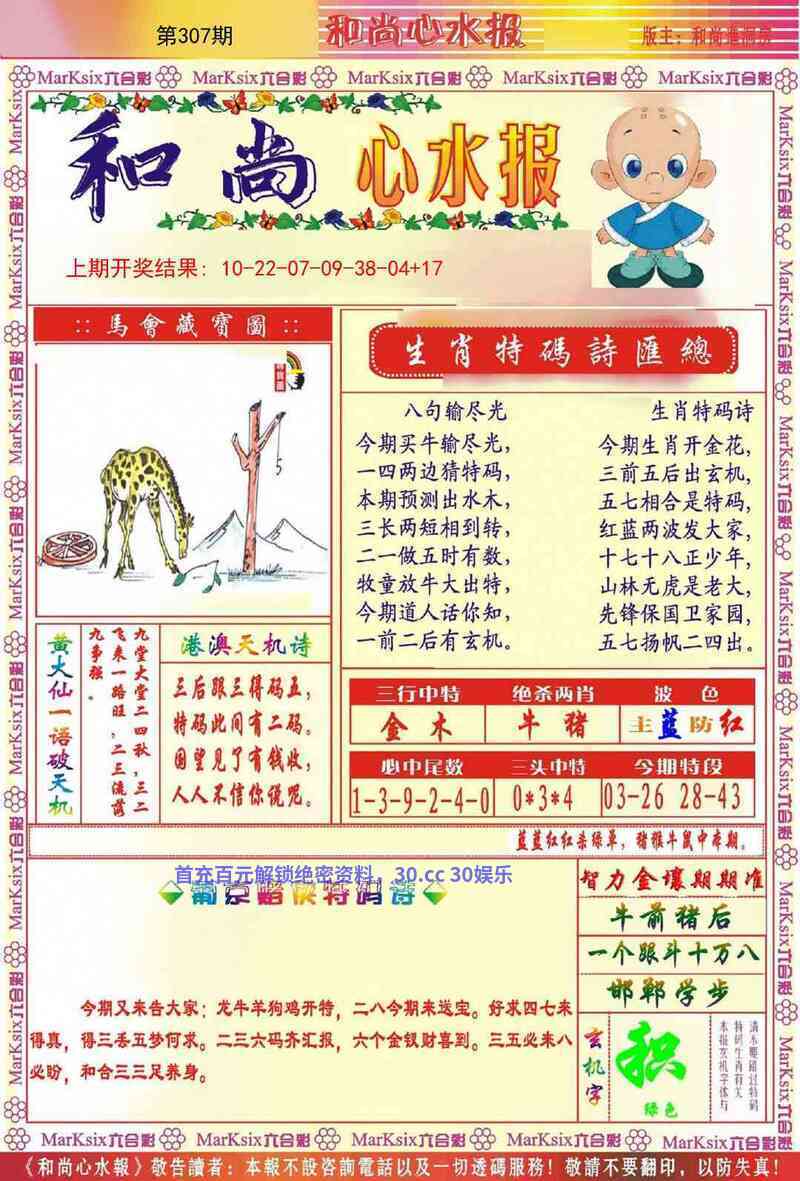 第307期
和尚心水报
版主：和尚進洞房
MarKsix六合彩 MarKsix六合彩 MarKsix六合彩 MarKsix六合彩 MarKsix六合彩
和尚心水报
上期开奖结果：10-22-07-09-38-04+17
::馬會藏寶圖::
5
生肖特碼詩匯總
八句输尽光
今期买牛输尽光，
一四两边猜特码，
本期预测出水木，
三长两短相到转，
二一做五时有数，
牧童放牛大出特，
今期道人话你知，
一前二后有玄机。
生肖特码诗
今期生肖开金花，
三前五后出玄机，
五七相合是特码，
红蓝两波发大家，
十七十八正少年，
山林无虎是老大，
先锋保国卫家园，
五七扬帆二四出。
黄大仙一语破天机
九堂大堂二四秋，三二
飞来一路旺，二三流落
九事强。
港澳天机诗
三后跟三得码五，
特码此间有二码。
国望见了有钱收，
人人不信你说呢。
三行中特 绝杀两肖 波 色
金 木 牛 猪 主蓝防红
必中尾数 三头中特 今期特段
1-3-9-2-4-0 0*3*4 03-26 28-43
蓝蓝红红杀绿单，猪猴牛鼠中本期。
首充百元解锁绝密资料，30.cc 30娱乐
葡京赌侠特码诗
今期又来告大家；龙牛羊狗鸡开特，二八今期来送宝。好求四七来
得真，得三丢五梦何求。二三六码齐汇报，六个金钗财喜到。三五必来八
必盼，和合三三足养身。
智力金壤期期准
牛前猪后
一个跟斗十万八
邯郸学步
玄机字
积
绿色
清水要踏过特码
特码生肖有关
本报玄机字体与
MarKsix六合彩 MarKsix六合彩 MarKsix六合彩 MarKsix六合彩 MarKsix六合彩
《和尚心水報》敬告讀者：本報不設咨詢電話以及一切透碼服務！敬請不要翻印，以防失真！